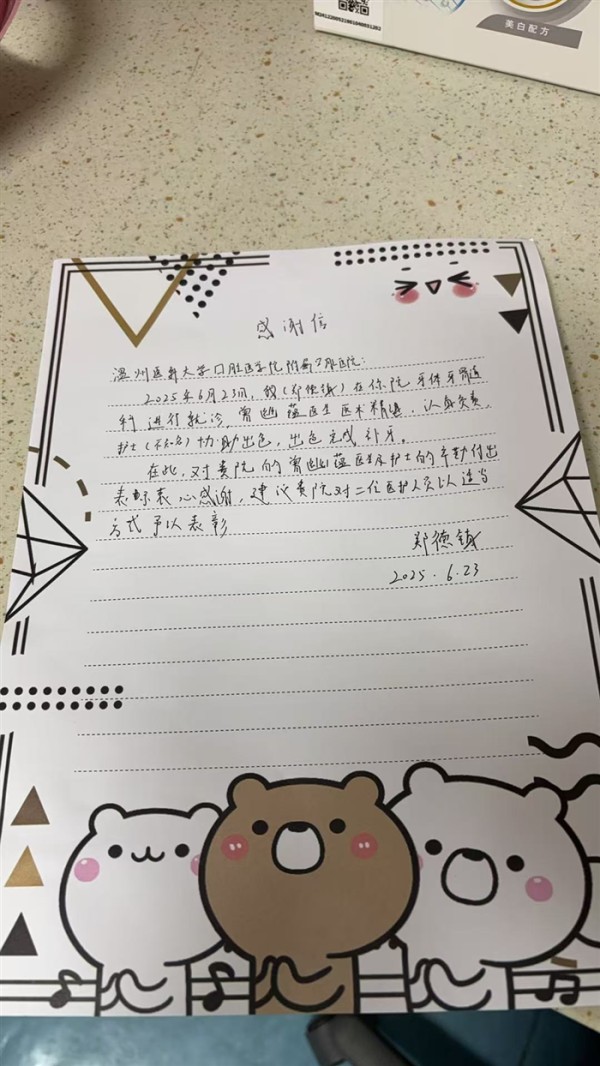 美白配方
感谢信
温州医科大学口腔医学院附属口腔医院:
2025年6月23日,我(郑德镇)在你院牙体牙髓进
行进行就诊,曾幽蕴医生医术精湛、认真负责,
护士(不知名)协助出色,出色完成补牙。
在此,对贵院的曾幽蕴医生及护士的辛勤付出
表示衷心感谢,建议贵院对二位医护人员以适当
方式予以表彰
郑德镇
2025.6.23